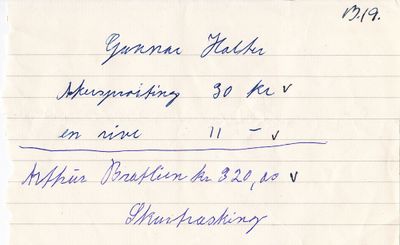 B.19.
Gunnar Holter
Akersprøiting 30 kr v
en rive 11 – v
Arthur Bratlien kr 320,00 v
Skurtræsking